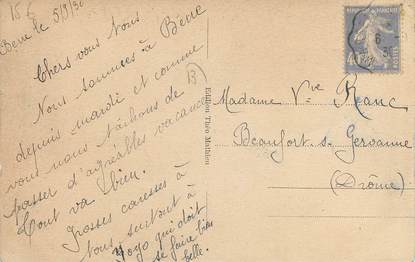 Berre le 5/9/30
Chers vous Nous
Nous sommes à Berre
depuis mardi et comme
vous nous tâchons de
passer d'agréables vacances
Tout va bien.
Grosses caresses à
tous surtout à
Yoyo qui doit
se faire bien
belle.
Edition Théo Mathieu
Madame Vve Ranc
Beaufort s. Gervanne
(Drôme)
POSTES